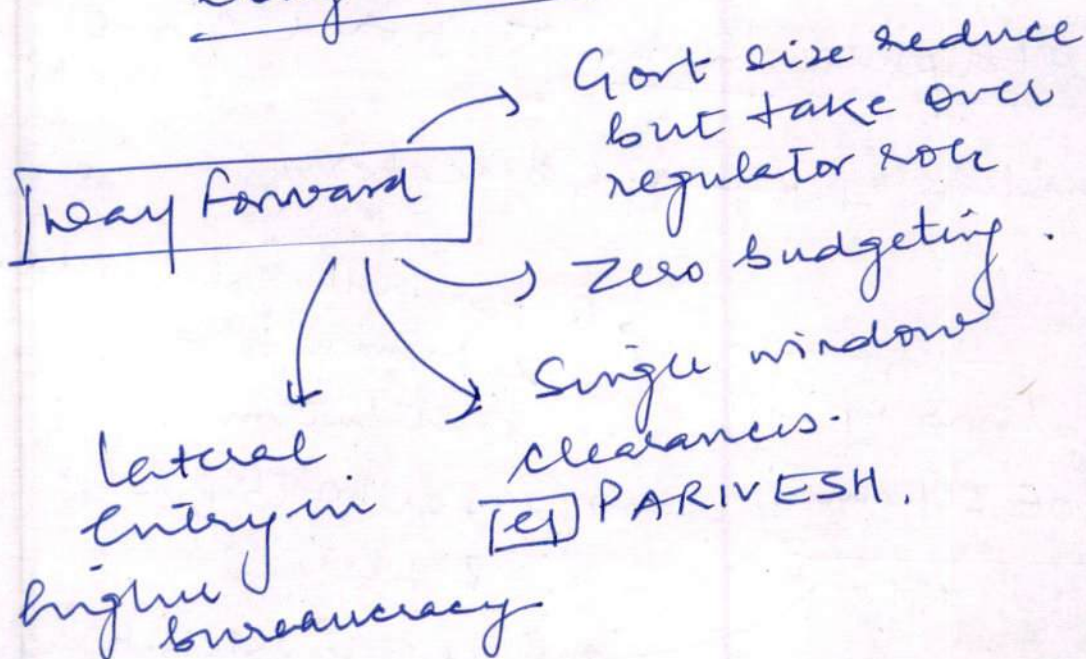 Way Forward
Govt size reduce
but take over
regulator role
Zero budgeting.
Single window
clearances.
eg PARIVESH.
lateral
entry in
higher
bureaucracy